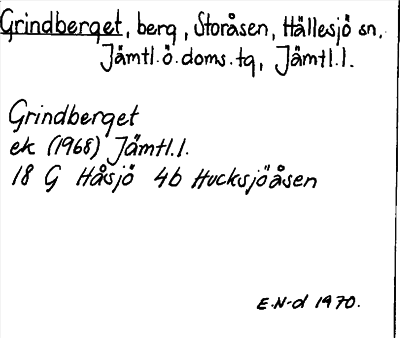 Grindberget, berg, Storåsen, Hällesjö sn,
Jämtl.ö.doms.tg, Jämtl.l.
Grindberget
ek (1968) Jämtl.l.
18 G Håsjö 4b Hucksjöåsen
E.N-d 1970.